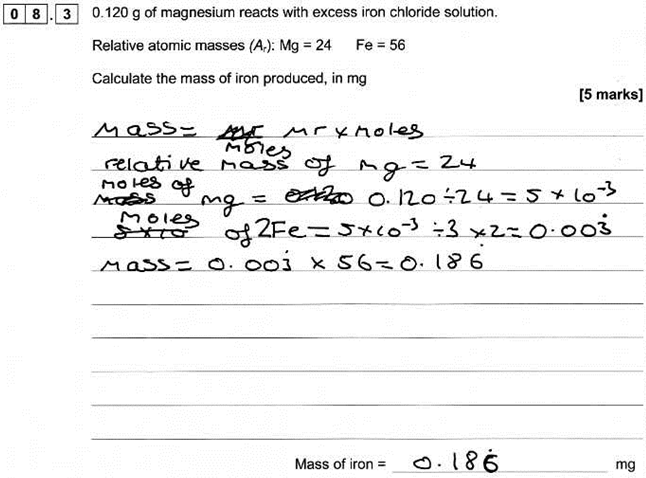 08.3 0.120 g of magnesium reacts with excess iron chloride solution.
Relative atomic masses (Aᵣ): Mg = 24 Fe = 56
Calculate the mass of iron produced, in mg
[5 marks]
Mass = Mr x Moles
Moles
relative mass of mg = 24
moles of
mg = 0.120 ÷ 24 = 5 x 10⁻³
Moles
of 2Fe = 5x10⁻³ ÷3 x2 = 0.003̇
Mass = 0.003̇ x 56 = 0.186̇
Mass of iron = 0.186̇ mg